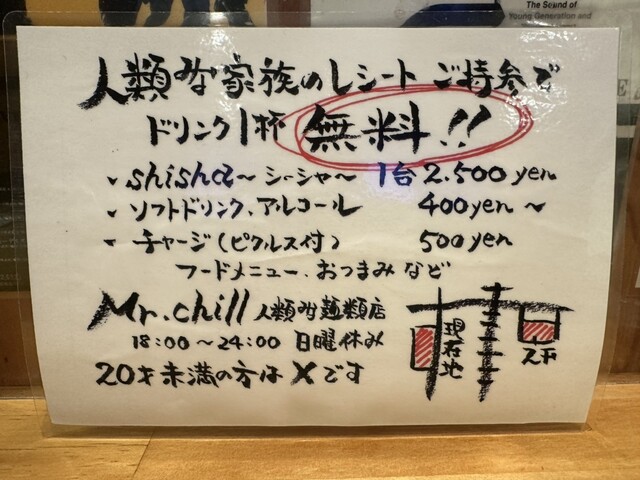 The Sound of
Young Generation and
人類みな家族のレシート ご持参で
ドリンク1杯 無料!!
shisha～シーシャ～ 1台 2.500yen
ソフトドリンク、アルコール 400yen～
チャージ(ピクルス付) 500yen
フードメニュー、おつまみなど
Mr.chill 人類みな麺類店
18:00～24:00 日曜休み
現在地
20才未満の方は×です